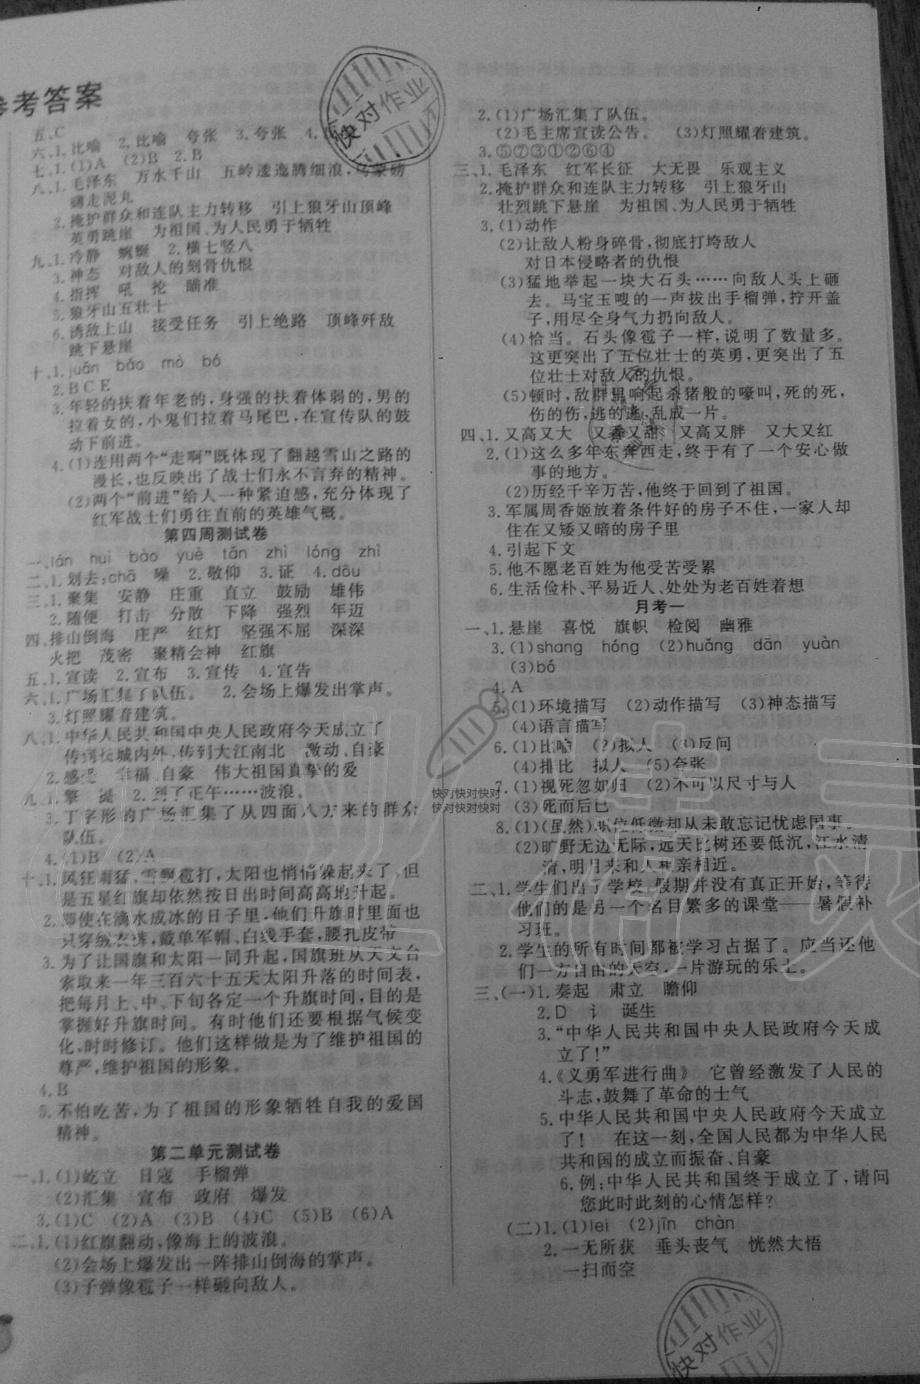 参考答案
五、C
六、1.比喻 2.比喻 夸张 3.夸张 4.
七、1.(1)A (2)B 2.B
八、1.毛泽东 万水千山 五岭逶迤腾细浪,乌蒙磅
礴走泥丸
2.掩护群众和连队主力转移 引上狼牙山顶峰
英勇跳崖 为祖国、为人民勇于牺牲
九、1.冷静 蜿蜒 2.横七竖八
3.神态 对敌人的刻骨仇恨
4.指挥 吼 抡 瞄准
5.狼牙山五壮士
6.诱敌上山 接受任务 引上绝路 顶峰歼敌
跳下悬崖
十、1.juān báo mò bó
2.B C E
3.年轻的扶着年老的,身强的扶着体弱的,男的
拉着女的,小鬼们拉着马尾巴,在宣传队的鼓
动下前进。
4.(1)连用两个“走啊”既体现了翻越雪山之路的
漫长,也反映出了战士们永不言弃的精神。
(2)两个“前进”给人一种紧迫感,充分体现了
红军战士们勇往直前的英雄气概。
第四周测试卷
一、lán huì bào yuè tǎn zhì lóng zhì
二、1.划去:chā 嗓 2.敬仰 3.证 4.dōu
三、1.聚集 安静 庄重 直立 鼓励 雄伟
2.随便 打击 分散 下降 强烈 年迈
四、排山倒海 庄严 红灯 坚强不屈 深深
火把 茂密 聚精会神 红旗
五、1.宣读 2.宣布 3.宣传 4.宣告
六、1.广场汇集了队伍。 2.会场上爆发出掌声。
3.灯照耀着建筑。
八、1.中华人民共和国中央人民政府今天成立了
传到长城内外,传到大江南北 激动、自豪
2.感受 幸福、自豪 伟大祖国真挚的爱
九、1.擎 提 2.到了正午……波浪。
3.丁字形的广场汇集了从四面八方来的群众
队伍。
4.(1)B (2)A
十、1.风狂雨猛,雪飘雹打,太阳也悄悄躲起来了,但
是五星红旗却依然按日出时间高高地升起。
2.即使在滴水成冰的日子里,他们升旗时里面也
只穿绒衣裤,戴单军帽、白线手套,腰扎皮带
3.为了让国旗和太阳一同升起,国旗班从天文台
索取来一年三百六十五天太阳升落的时间表,
把每月上、中、下旬各定一个升旗时间,目的是
掌握好升旗时间。有时他们还要根据气候变
化,时时修订。他们这样做是为了维护祖国的
尊严,维护祖国的形象。
4.B
5.不怕吃苦,为了祖国的形象牺牲自我的爱国
精神。
第二单元测试卷
一、1.(1)屹立 日寇 手榴弹
(2)汇集 宣布 政府 爆发
3.(1)C (2)A (3)B (4)C (5)B (6)A
二、1.(1)红旗翻动,像海上的波浪。
(2)会场上爆发出一阵排山倒海的掌声。
(3)子弹像雹子一样砸向敌人。
2.(1)广场汇集了队伍。
(2)毛主席宣读公告。 (3)灯照耀着建筑。
3.⑤⑦③①②⑥④
三、1.毛泽东 红军长征 大无畏 乐观主义
2.掩护群众和连队主力转移 引上狼牙山
壮烈跳下悬崖 为祖国、为人民勇于牺牲
3.(1)动作
(2)让敌人粉身碎骨,彻底打垮敌人
对日本侵略者的仇恨
(3)猛地举起一块大石头……向敌人头上砸
去。马宝玉嗖的一声拔出手榴弹,拧开盖
子,用尽全身气力扔向敌人。
(4)恰当。石头像雹子一样,说明了数量多。
这更突出了五位壮士的英勇,更突出了五
位壮士对敌人的仇恨。
(5)顿时,敌群里响起杀猪般的嚎叫,死的死,
伤的伤,逃的逃,乱成一片。
四、1.又高又大 又香又甜 又高又胖 又大又红
2.(1)这么多年东奔西走,终于有了一个安心做
事的地方。
(2)历经千辛万苦,他终于回到了祖国。
3.军属周香姬放着条件好的房子不住,一家人却
住在又矮又暗的房子里
4.引起下文
5.他不愿老百姓为他受苦受累
6.生活俭朴、平易近人、处处为老百姓着想
月考一
一、1.悬崖 喜悦 旗帜 检阅 幽雅
3.(1)shang hóng (2)huǎng dān yuàn
(3)bó
4.A
5.(1)环境描写 (2)动作描写 (3)神态描写
(4)语言描写
6.(1)比喻 (2)拟人 (3)反问
(4)排比 拟人 (5)夸张
7.(1)视死忽如归 (2)不可以尺寸与人
(3)死而后已
8.(1)(虽然)职位低微却从未敢忘记忧虑国事。
(2)旷野无边无际,远天比树还要低沉,江水清
清,明月来和人相亲相近。
二、1.学生们出了学校,假期并没有真正开始,等待
他们的是另一个名目繁多的课堂——暑假补
习班。
2.学生的所有时间都被学习占据了。应当还他
们一方自由的天空,一片游玩的乐土。
三、(一)1.奏起 肃立 瞻仰
2.D 讠 诞生
3.“中华人民共和国中央人民政府今天成
立了!”
4.《义勇军进行曲》 它曾经激发了人民的
斗志,鼓舞了革命的士气
5.中华人民共和国中央人民政府今天成立
了! 在这一刻,全国人民都为中华人民
共和国的成立而振奋、自豪
6.例:中华人民共和国终于成立了,请问
您此时此刻的心情怎样?
(二)1.(1)lei (2)jīn chàn
2.一无所获 垂头丧气 恍然大悟
一扫而空
快对作业
快对快对快对
快对快对快对
快对作业